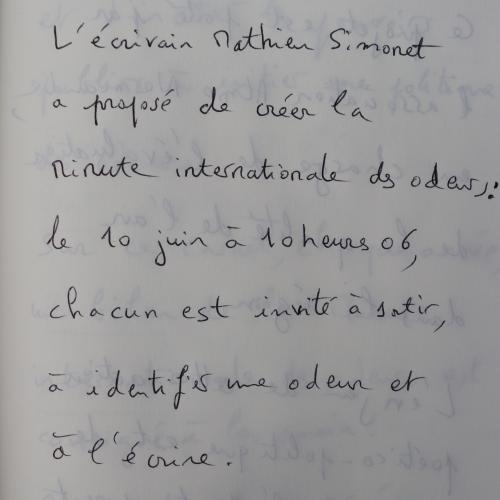 L'écrivain Mathieu Simonet
a proposé de créer la
minute internationale des odeurs :
le 10 juin à 10 heures 06,
chacun est invité à sortir,
à identifier une odeur et
à l'écrire.